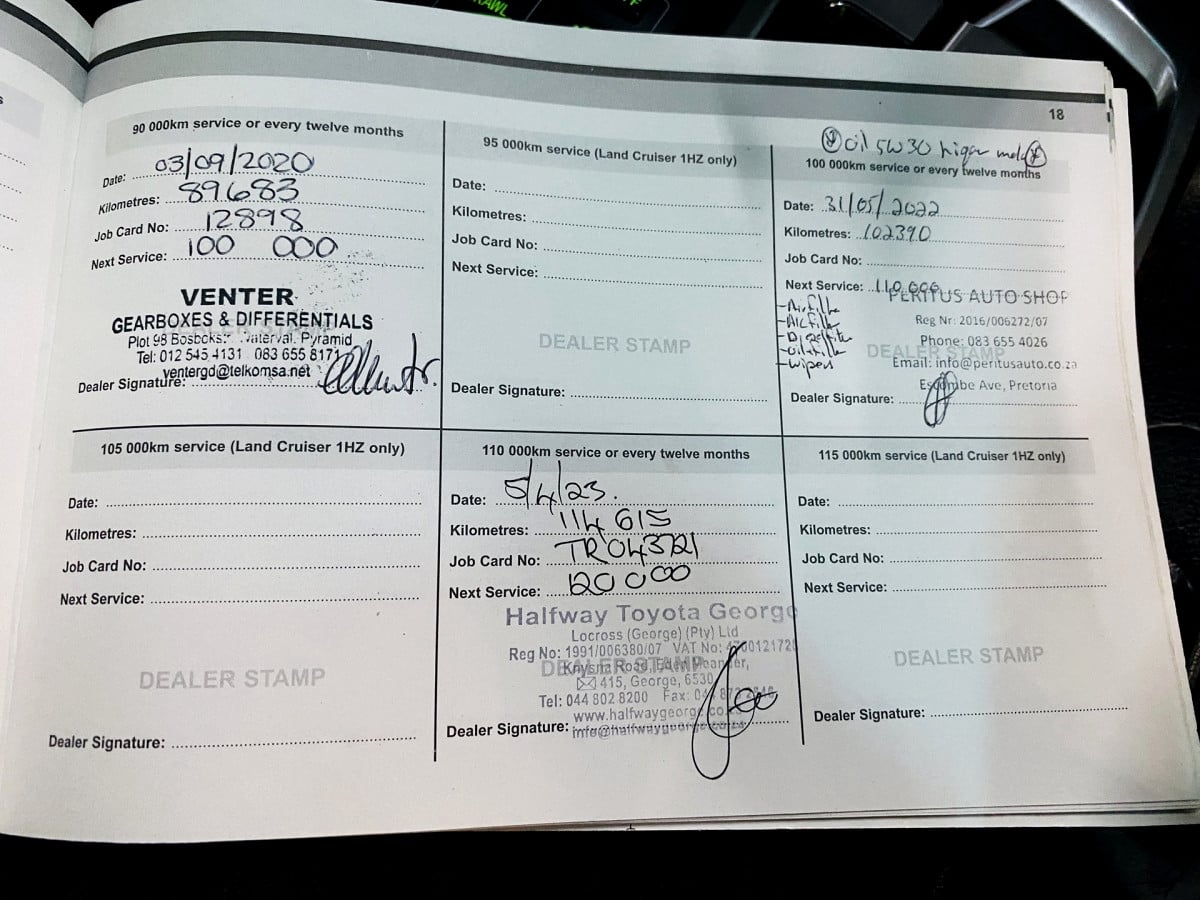 18
90 000km service or every twelve months
Date: 03/09/2020
Kilometres: 89683
Job Card No: 12898
Next Service: 100 000
VENTER
GEARBOXES & DIFFERENTIALS
Plot 98 Pyramid
Tel: 012 545 4131 083 655 8171
ventergd@telkomsa.net
Dealer Signature:
95 000km service (Land Cruiser 1HZ only)
Date:
Kilometres:
Job Card No:
Next Service:
DEALER STAMP
Dealer Signature:
Oil 5W30
100 000km service or every twelve months
Date: 31/05/2022
Kilometres: 102390
Job Card No:
Next Service: 110 000
PERITUS AUTO SHOP
Reg Nr: 2016/006272/07
Phone: 083 655 4026
DEALER STAMP
Email: info@peritusauto.co.za
Ave, Pretoria
- wipers
Dealer Signature:
105 000km service (Land Cruiser 1HZ only)
Date:
Kilometres:
Job Card No:
Next Service:
DEALER STAMP
Dealer Signature:
110 000km service or every twelve months
Date: 5/4/23.
Kilometres: 114 615
Job Card No: TR043721
Next Service: 120 000
Halfway Toyota George
Locross (George) (Pty) Ltd
Reg No: 1991/006380/07 VAT No:
DEALER STAMP
Knysna Road, Eden Meander,
415, George, 6530
Tel: 044 802 8200 Fax:
www.halfwaygeorge.co.za
Dealer Signature: info@halfwaygeorge.co.za
115 000km service (Land Cruiser 1HZ only)
Date:
Kilometres:
Job Card No:
Next Service:
DEALER STAMP
Dealer Signature: